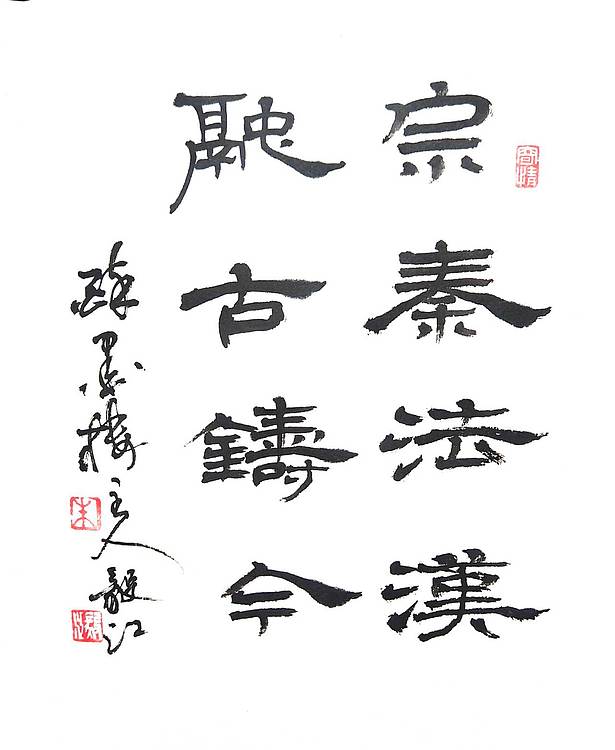 宗秦法漢
融古鑄今
醉墨樓主人江
朱